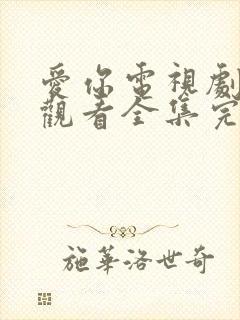 愛你電視劇
觀看全集完
施華洛世奇